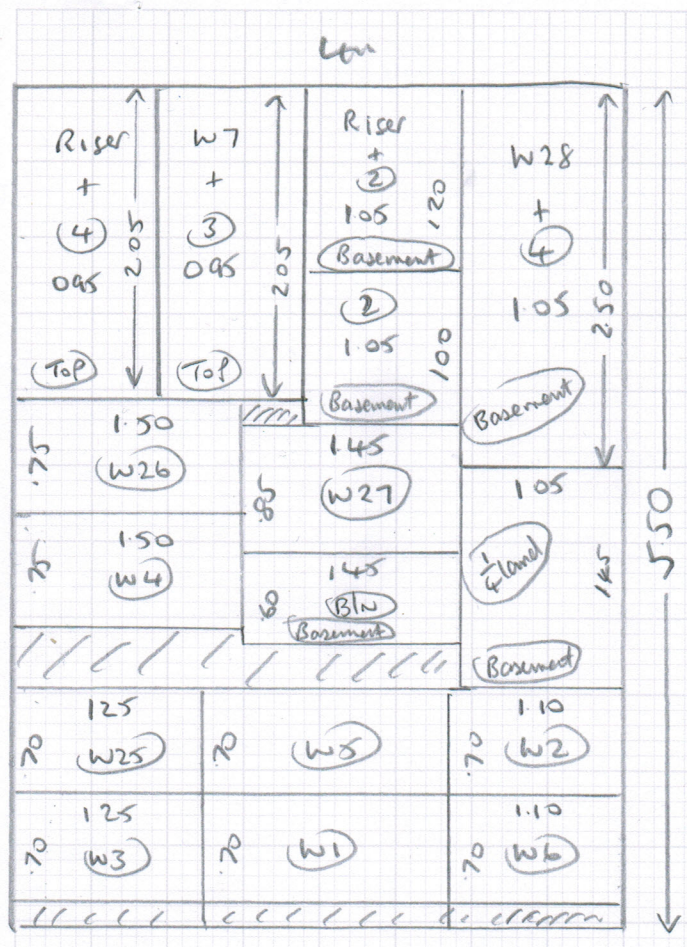 4m
Riser
+
4
095
2.05
Top
W7
+
3
095
205
Top
Riser
+
2
1.05
120
Basement
2
1.05
100
Basement
W28
+
4
1.05
2.50
Basement
5.50
1.50
.75
W26
1.50
.75
W4
1.45
.85
W27
145
.60
B/N
Basement
105
1/4 land
145
Basement
125
.70
W25
.70
W5
1.10
.70
W2
125
.70
W3
.70
W1
1.10
.70
W6